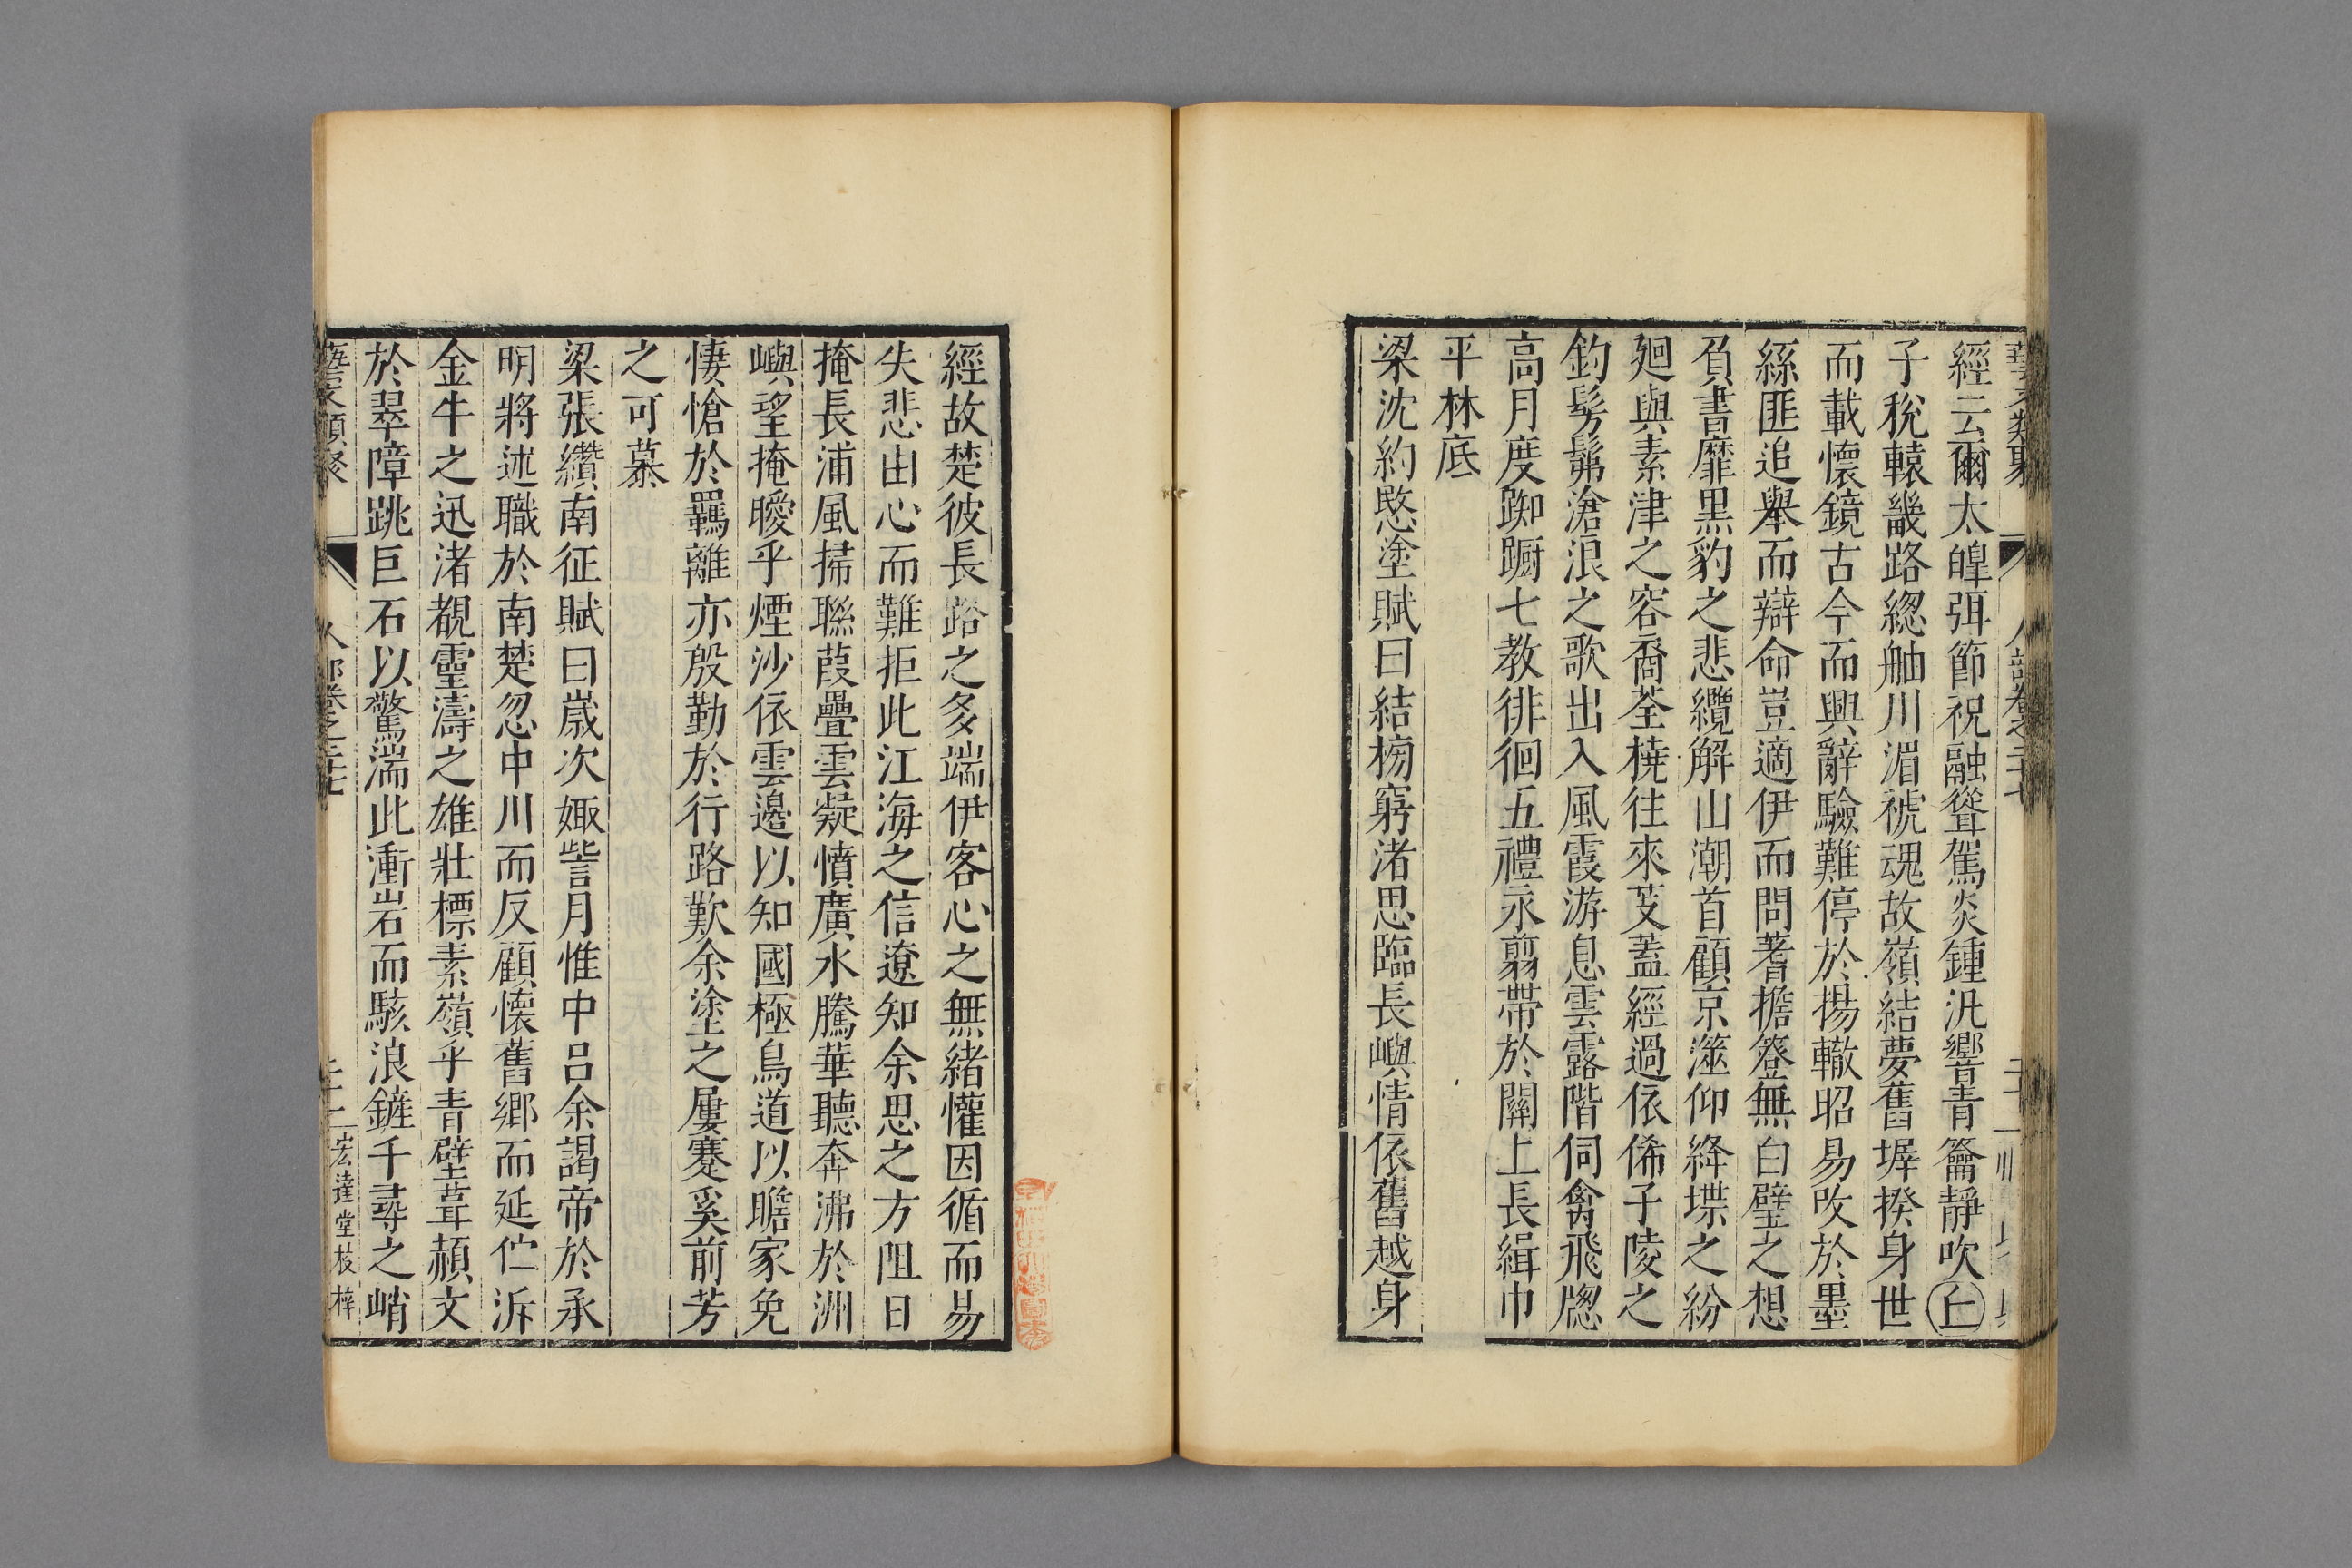 經云爾太皥弭節祝融聳駕炎鍾汎響青籥靜吹㊤
子稅轅畿路總舳川湄禠魂故嶺結夢舊墀揆身世
而載懷鏡古今而興辭驗難停於揚轍昭易改於墨
絲匪追舉而辯命豈適伊而問蓍擔簦無白璧之想
負書靡黑豹之悲纜解山潮首顧京澨仰絳堞之紛
廻與素津之容裔荃橈往來芰蓋經過依俙子陵之
釣髣髴滄浪之歌出入風霞游息雲露階伺禽飛牕
高月度踟蹰七教徘徊五禮永翦帶於關上長緝巾
平林底
梁沈約愍塗賦曰結榜窮渚思臨長嶼情依舊越身
經故楚彼長路之多端伊客心之無緒懽因循而易
失悲由心而難拒此江海之信遼知余思之方阻日
掩長浦風掃聯葭疊雲凝憤廣水騰華聽奔沸於洲
嶼望掩曖乎煙沙依雲邊以知國極鳥道以瞻家免
悽愴於羈離亦殷勤於行路歎余塗之屢蹇奚前芳
之可慕
梁張纘南征賦曰歲次娵訾月惟中呂余謁帝於承
明將述職於南楚忽中川而反顧懷舊鄉而延佇泝
金牛之迅渚覩靈濤之雄壯標素嶺乎青壁葺赬文
於翠障跳巨石以驚湍批衝岩而駭浪鏟千尋之峭
藝文類聚 人部卷之二十七 二十二 宏達堂校梓